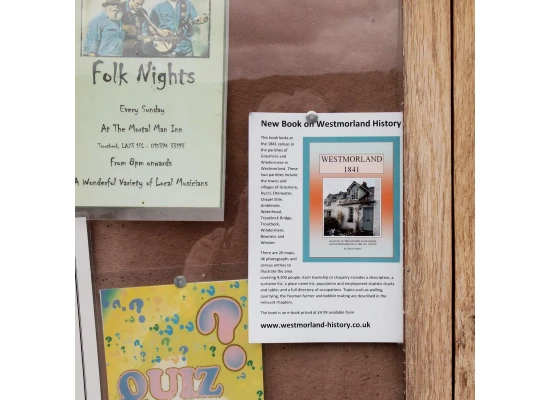 Folk Nights
Every Sunday
At The Mortal Man Inn
Troutbeck, LA23 1PL - 015394 33193
From 8pm onwards
A Wonderful Variety of Local Musicians
New Book on Westmorland History
This book looks at
the 1841 census in
the parishes of
Grasmere and
Windermere in
Westmorland. These
two parishes include
the towns and
villages of Grasmere,
Rydal, Elterwater,
Chapel Stile,
Ambleside,
Waterhead,
Troutbeck Bridge,
Troutbeck,
Windermere,
Bowness and
Winster.
There are 26 maps,
46 photographs and
census entries to
illustrate the area
covering 4,000 people. Each township or chapelry includes a description, a
surname list, a place name list, population and employment statistics charts
and tables and a full directory of occupations. Topics such as walling,
quarrying, the Yeoman farmer and bobbin making are described in the
relevant chapters.
The book is an e-book priced at £4.99 available from
www.westmorland-history.co.uk
WESTMORLAND
1841
QUIZ
?